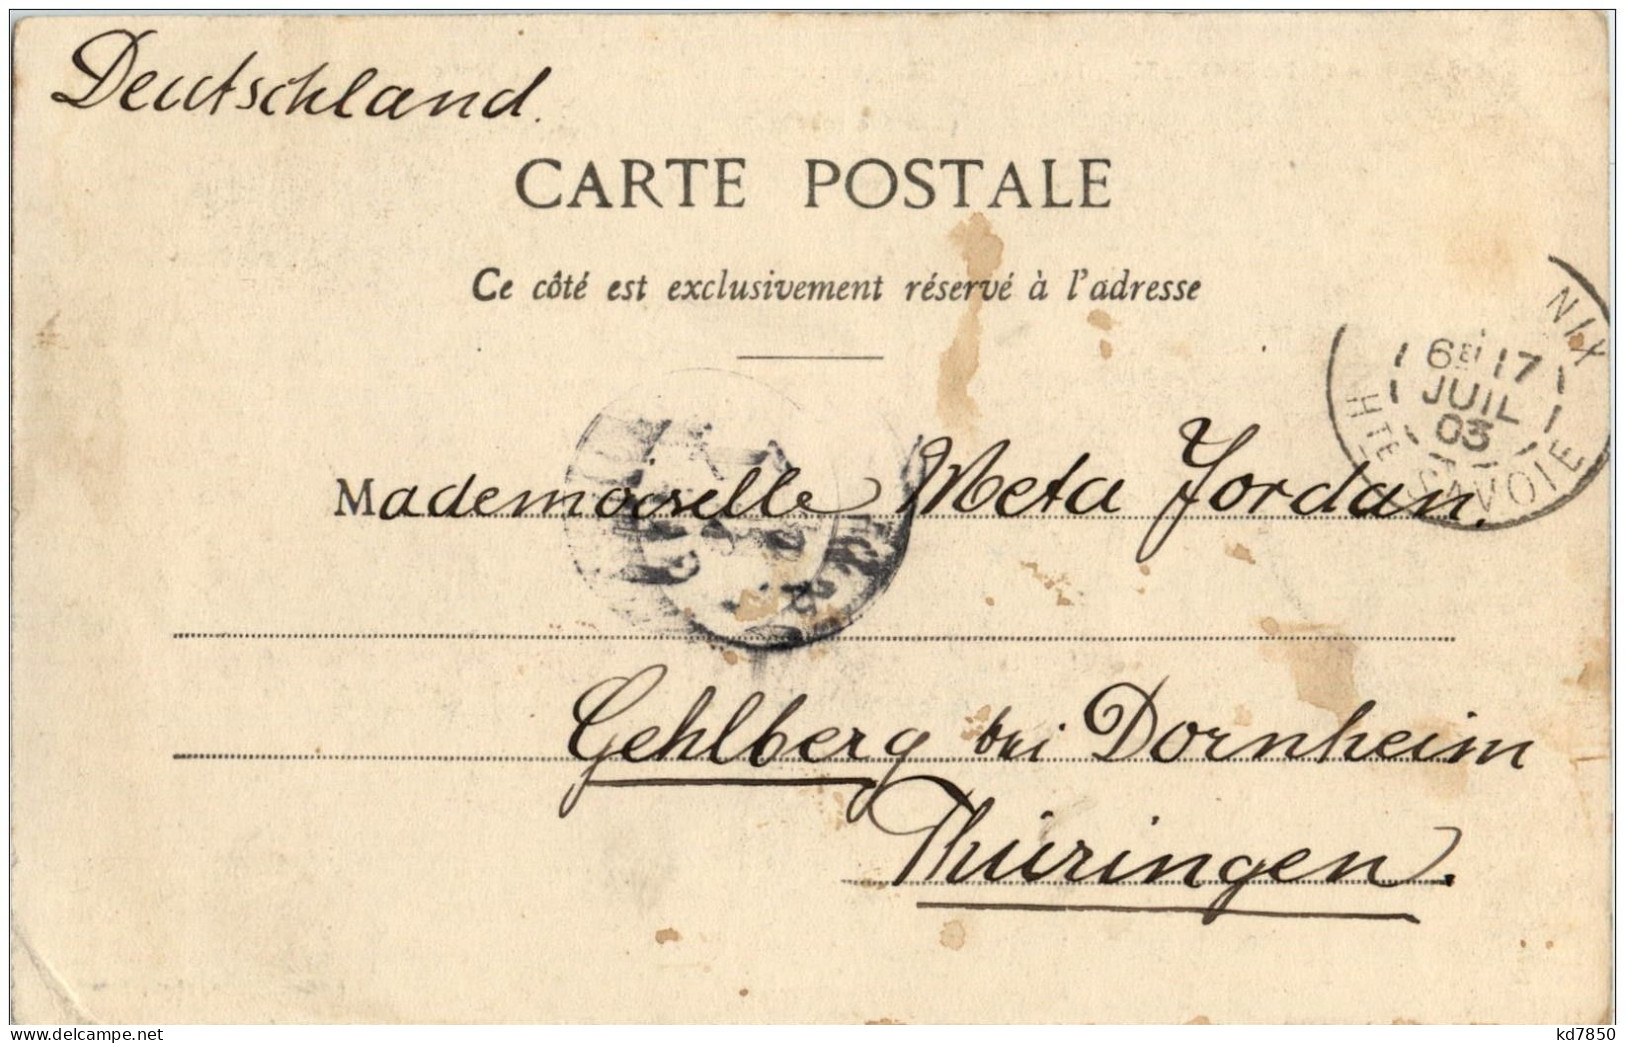 Deutschland.
CARTE POSTALE
Ce côté est exclusivement réservé à l'adresse
NIX
6E 17
JUIL
03
HTE SAVOIE
Mademoiselle Meta Jordan.
Gehlberg bei Dornheim
Thüringen.
www.delcampe.net
kd7850